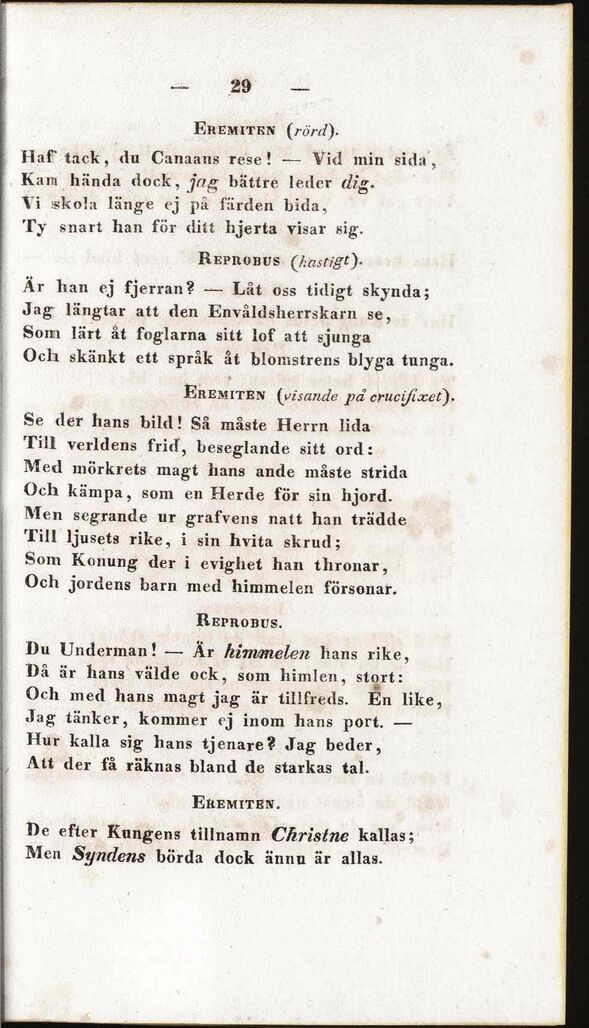 — 29 —
EREMITEN (rörd).
Haf tack, du Canaans rese! — Vid min sida,
Kan hända dock, jag bättre leder dig.
Vi skola länge ej på färden bida,
Ty snart han för ditt hjerta visar sig.
REPROBUS (hastigt).
Är han ej fjerran? — Låt oss tidigt skynda;
Jag längtar att den Envåldsherrskarn se,
Som lärt åt foglarna sitt lof att sjunga
Och skänkt ett språk åt blomstrens blyga tunga.
EREMITEN (visande på crucifixet).
Se der hans bild! Så måste Herrn lida
Till verldens frid, beseglande sitt ord:
Med mörkrets magt hans ande måste strida
Och kämpa, som en Herde för sin hjord.
Men segrande ur grafvens natt han trädde
Till ljusets rike, i sin hvita skrud;
Som Konung der i evighet han thronar,
Och jordens barn med himmelen försonar.
REPROBUS.
Du Underman! — Är himmelen hans rike,
Då är hans välde ock, som himlen, stort:
Och med hans magt jag är tillfreds. En like,
Jag tänker, kommer ej inom hans port. —
Hur kalla sig hans tjenare? Jag beder,
Att der få räknas bland de starkas tal.
EREMITEN.
De efter Kungens tillnamn Christne kallas;
Men Syndens börda dock ännu är allas.